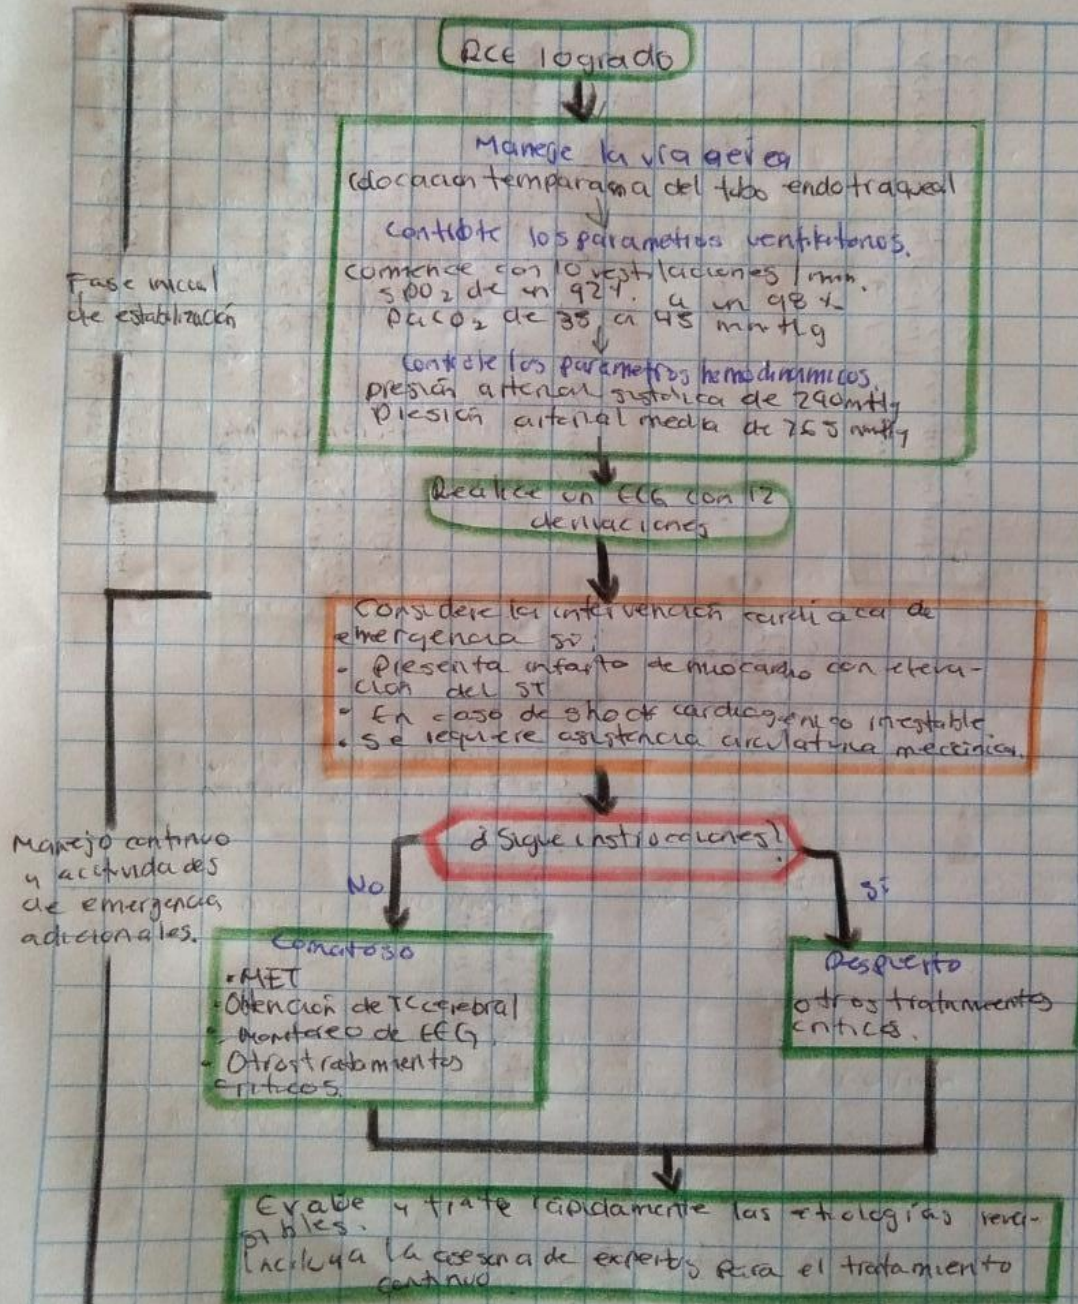 RCE logrado
Maneje la vía aérea
Colocación temparana del tubo endotraqueal
Controle los parametros ventilatorios.
comience con 10 ventilaciones / min.
SpO2 de un 92%. a un 98%
PaCO2 de 35 a 45 mmHg
Controle los parametros hemodinámicos.
presión arterial sistólica de ≥90mmHg
Presión arterial media de ≥65 mmHg
Realice un ECG con 12
derivaciones
Fase inicial
de estabilización
Considere la intervención cardiaca de
emergencia si:
- Presenta infarto de miocardio con eleva-
ción del ST
• En caso de shock cardiogénico inestable
• Se requiere asistencia circulatoria mecánica.
¿Sigue instrucciones?
Manejo continuo
y actividades
de emergencia
adicionales.
No
Sí
Comatoso
• MET
• Obtención de TC cerebral
• Monitoreo de EEG
• Otros tratamientos
críticos.
Despierto
otros tratamientos
críticos.
Evalúe y trate rápidamente las etiologías rever-
sibles.
Incluya la asesoría de expertos para el tratamiento
continuo